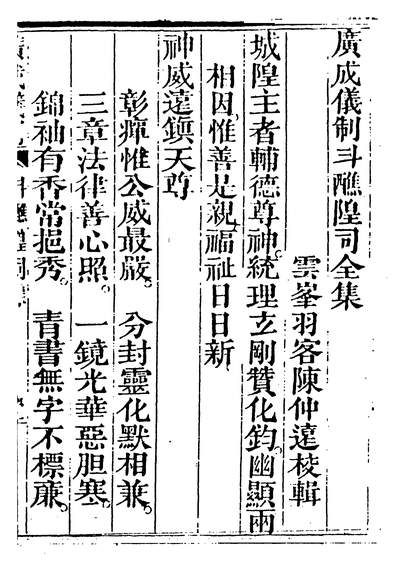 廣成儀制斗醮隍司全集
雲峯羽客陳仲遠校輯
城隍主者輔德尊神。統理玄剛贊化鈞。幽顯兩
相因。惟善是親。福祉日日新
神威遠鎮天尊
彰癉惟公威最嚴。 分封靈化默相兼。
三章法律善心照。 一鏡光華惡胆寒。
錦袖有香常挹秀。 青書無字不標亷。